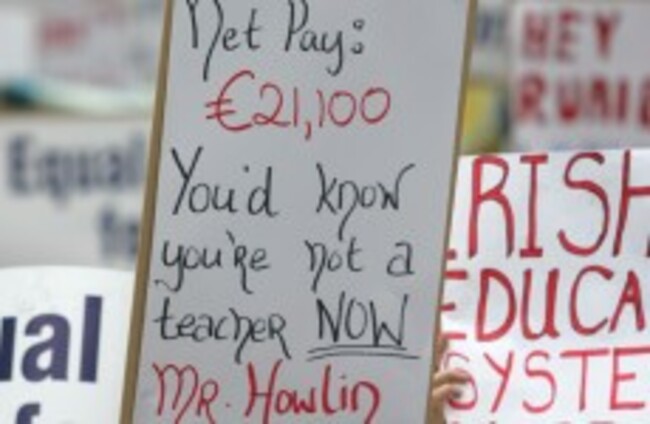 Net Pay:
€21,100
You'd know
you're not a
teacher NOW
MR. Howlin
Equal
ual
HEY
IRISH
EDUCA
SYSTE